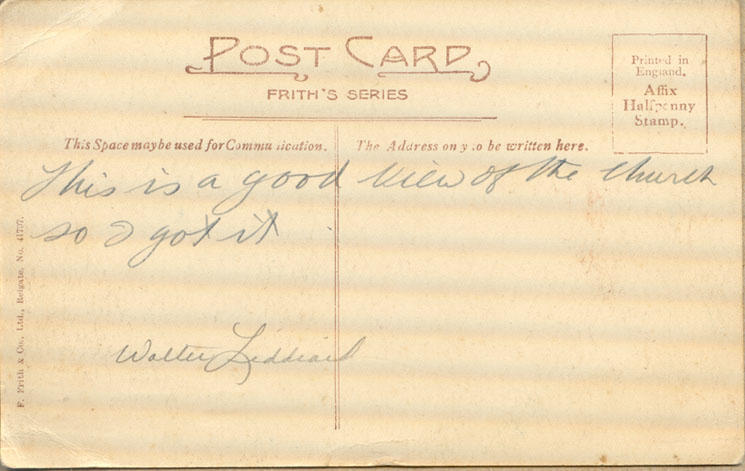 POST CARD
FRITH'S SERIES
Printed in
England.
Affix
Halfpenny
Stamp.
This Space may be used for Communication.
The Address only to be written here.
This is a good view of the church
so I got it
Walter Liddiard
F. Frith & Co., Ltd., Reigate. No. 41737.